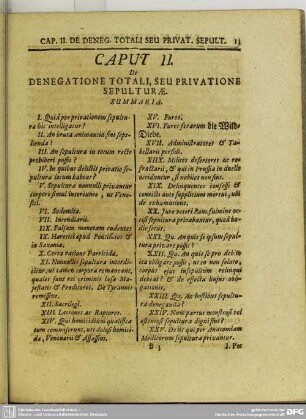 CAP. II. DE DENEG. TOTALI SEU PRIVAT. SEPULT. 13
CAPUT II.
De
DENEGATIONE TOTALI, SEU PRIVATIONE
SEPULTURÆ.
SUMMARIA.
I. Quid per privationem sepultu-
ra hic intelligatur?
II. An bruta animantia sint sepe-
lienda?
III. An sepultura in totum recte
prohiberi possit?
IV. In quibus debitis privatio se-
pultura locum habeat?
V. Sepultura nonnulli privantur
corpore simul intereunte, ut Vene-
fici.
VI. Sodomitæ.
VII. Incendiarii.
IIX. Falsam monetam cudentes
IX. Hæretici apud Pontificios &
in Saxonia,
X. Certa ratione Parricidæ.
XI. Nonnullis sepultura interdi-
citur, ut tamen corpora remaneant,
quales sunt rei criminis læsæ Ma-
jestatis & Proditores. De Tyrannis
remissive.
XII. Sacrilegi.
XIII. Latrones ac Raptores.
XIV. Qui homicidium qualifica-
tum commiserunt, uti dolosi homici-
dæ, Venenarii & Assassini.
XV. Fures.
XVI. Fures ferarum die Wild-
Diebe.
XVII. Administratores & Ta-
bellarii perfidi.
XIIX. Milites desertores ac re-
fractarii, & qui in Prussia in duello
occiduntur, si nobiles non sint.
XIX. Delinquentes confessi &
convicti ante supplicium mortui, ubi
de exhumatione.
XX. Jure veteri Rom. fœminæ ac-
cessu sepultura privabantur, quod ho-
die secus.
XXI. Qu. An quis se ipsum sepul-
tura privare possit?
XXII. Qu. An quis se pro debito
ita obligare possit, ut eo non soluto,
corpus ejus insepultum relinqui
debeat? & de effectu hujus obliga-
tionis.
XXIII. Qu. An hostibus sepultu-
ra deneganda?
XXIV. Num partus monstrosi vel
abortivi sepultura digni sint?
XXV. De iis qui per Anatomiam
Medicorum sepultura privantur.
B 3 I. Per